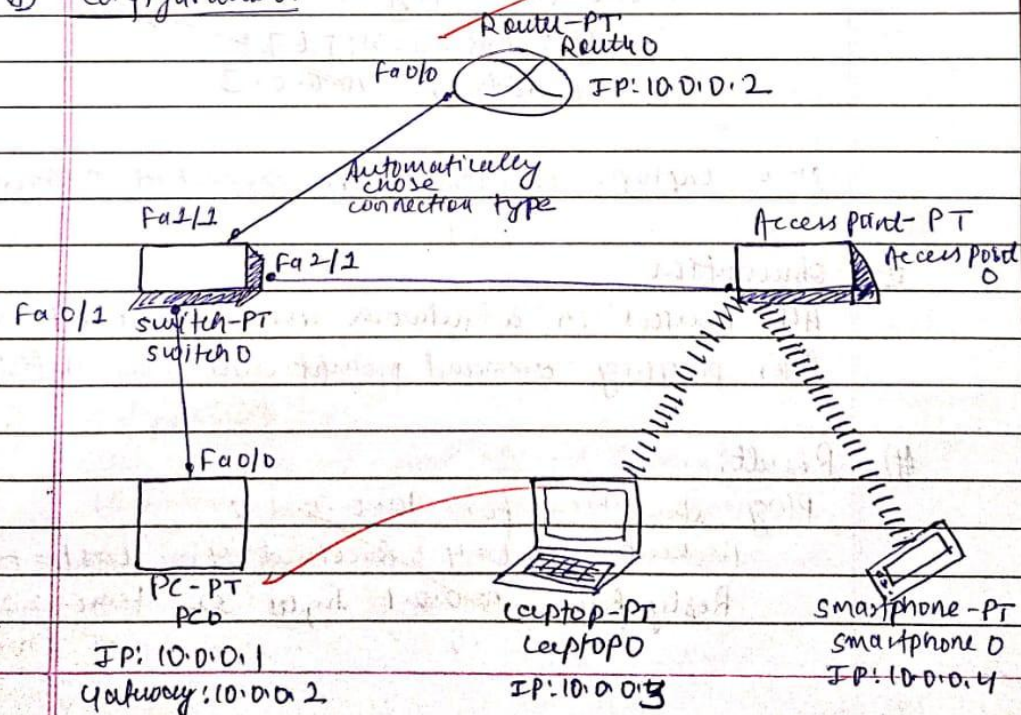 Configuration
Router-PT
Router 0
Fa0/0
IP: 10.0.0.2
Automatically
chose
connection type
Fa1/1
Access point-PT
Access point
0
Fa2/1
Fa 0/1
switch-PT
switch 0
Fa0/0
PC-PT
PC0
IP: 10.0.0.1
Gateway: 10.0.0.2
Laptop-PT
Laptop 0
IP: 10.0.0.3
Smartphone-PT
smartphone 0
IP: 10.0.0.4